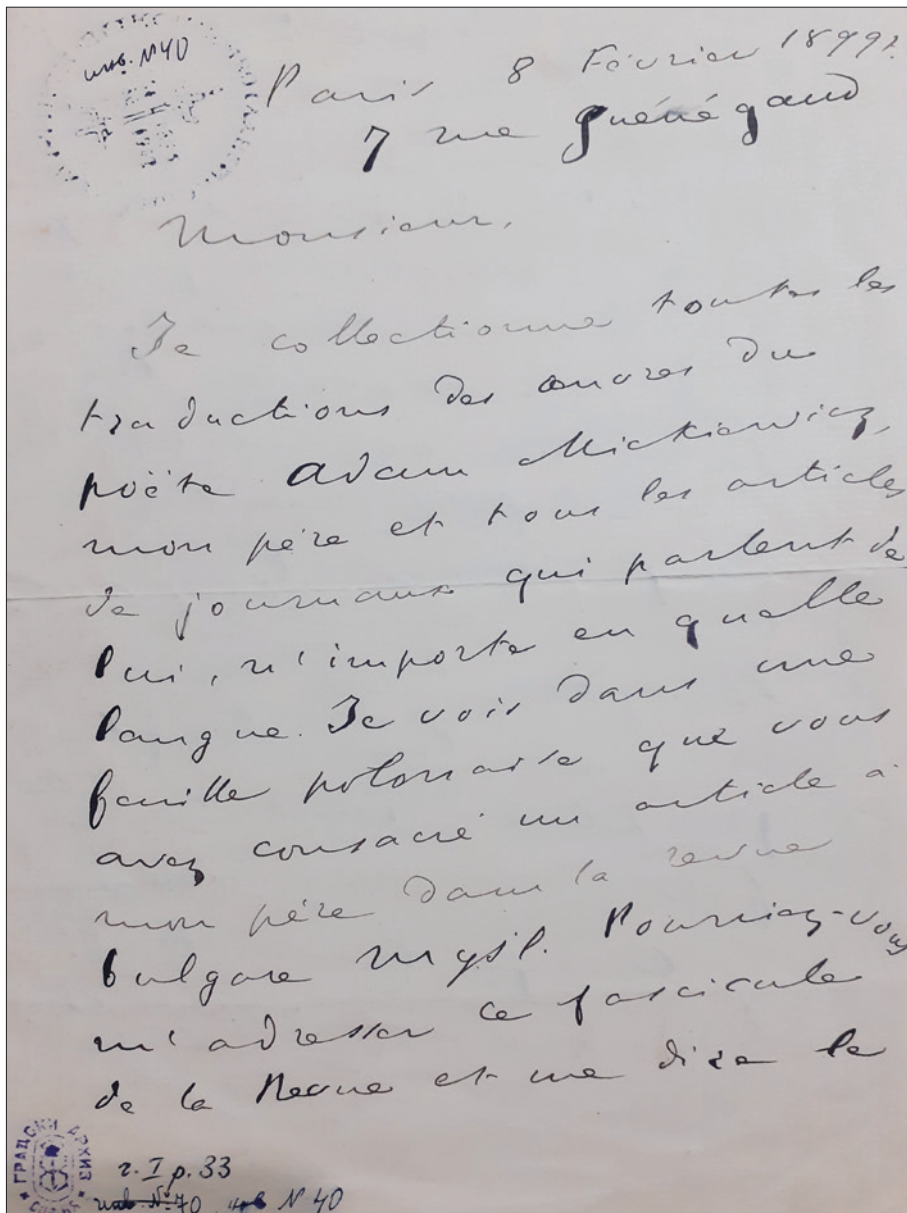 инв. №40
Paris 8 Février 1899.
7 rue Guénégaud
Monsieur,
Je collectionne toutes les
traductions des œuvres du
poète Adam Mickiewicz,
mon père et tous les articles
de journaux qui parlent de
lui, n'importe en quelle
langue. Je vois dans une
feuille polonaise que vous
avez consacré un article à
mon père dans la revue
bulgare Mysl. Pourriez-vous
m'adresser ce fascicule
de la Revue et me dire le
ГРАДСКИ АРХИВ
г. I р. 33
инв. №70, инв N 40